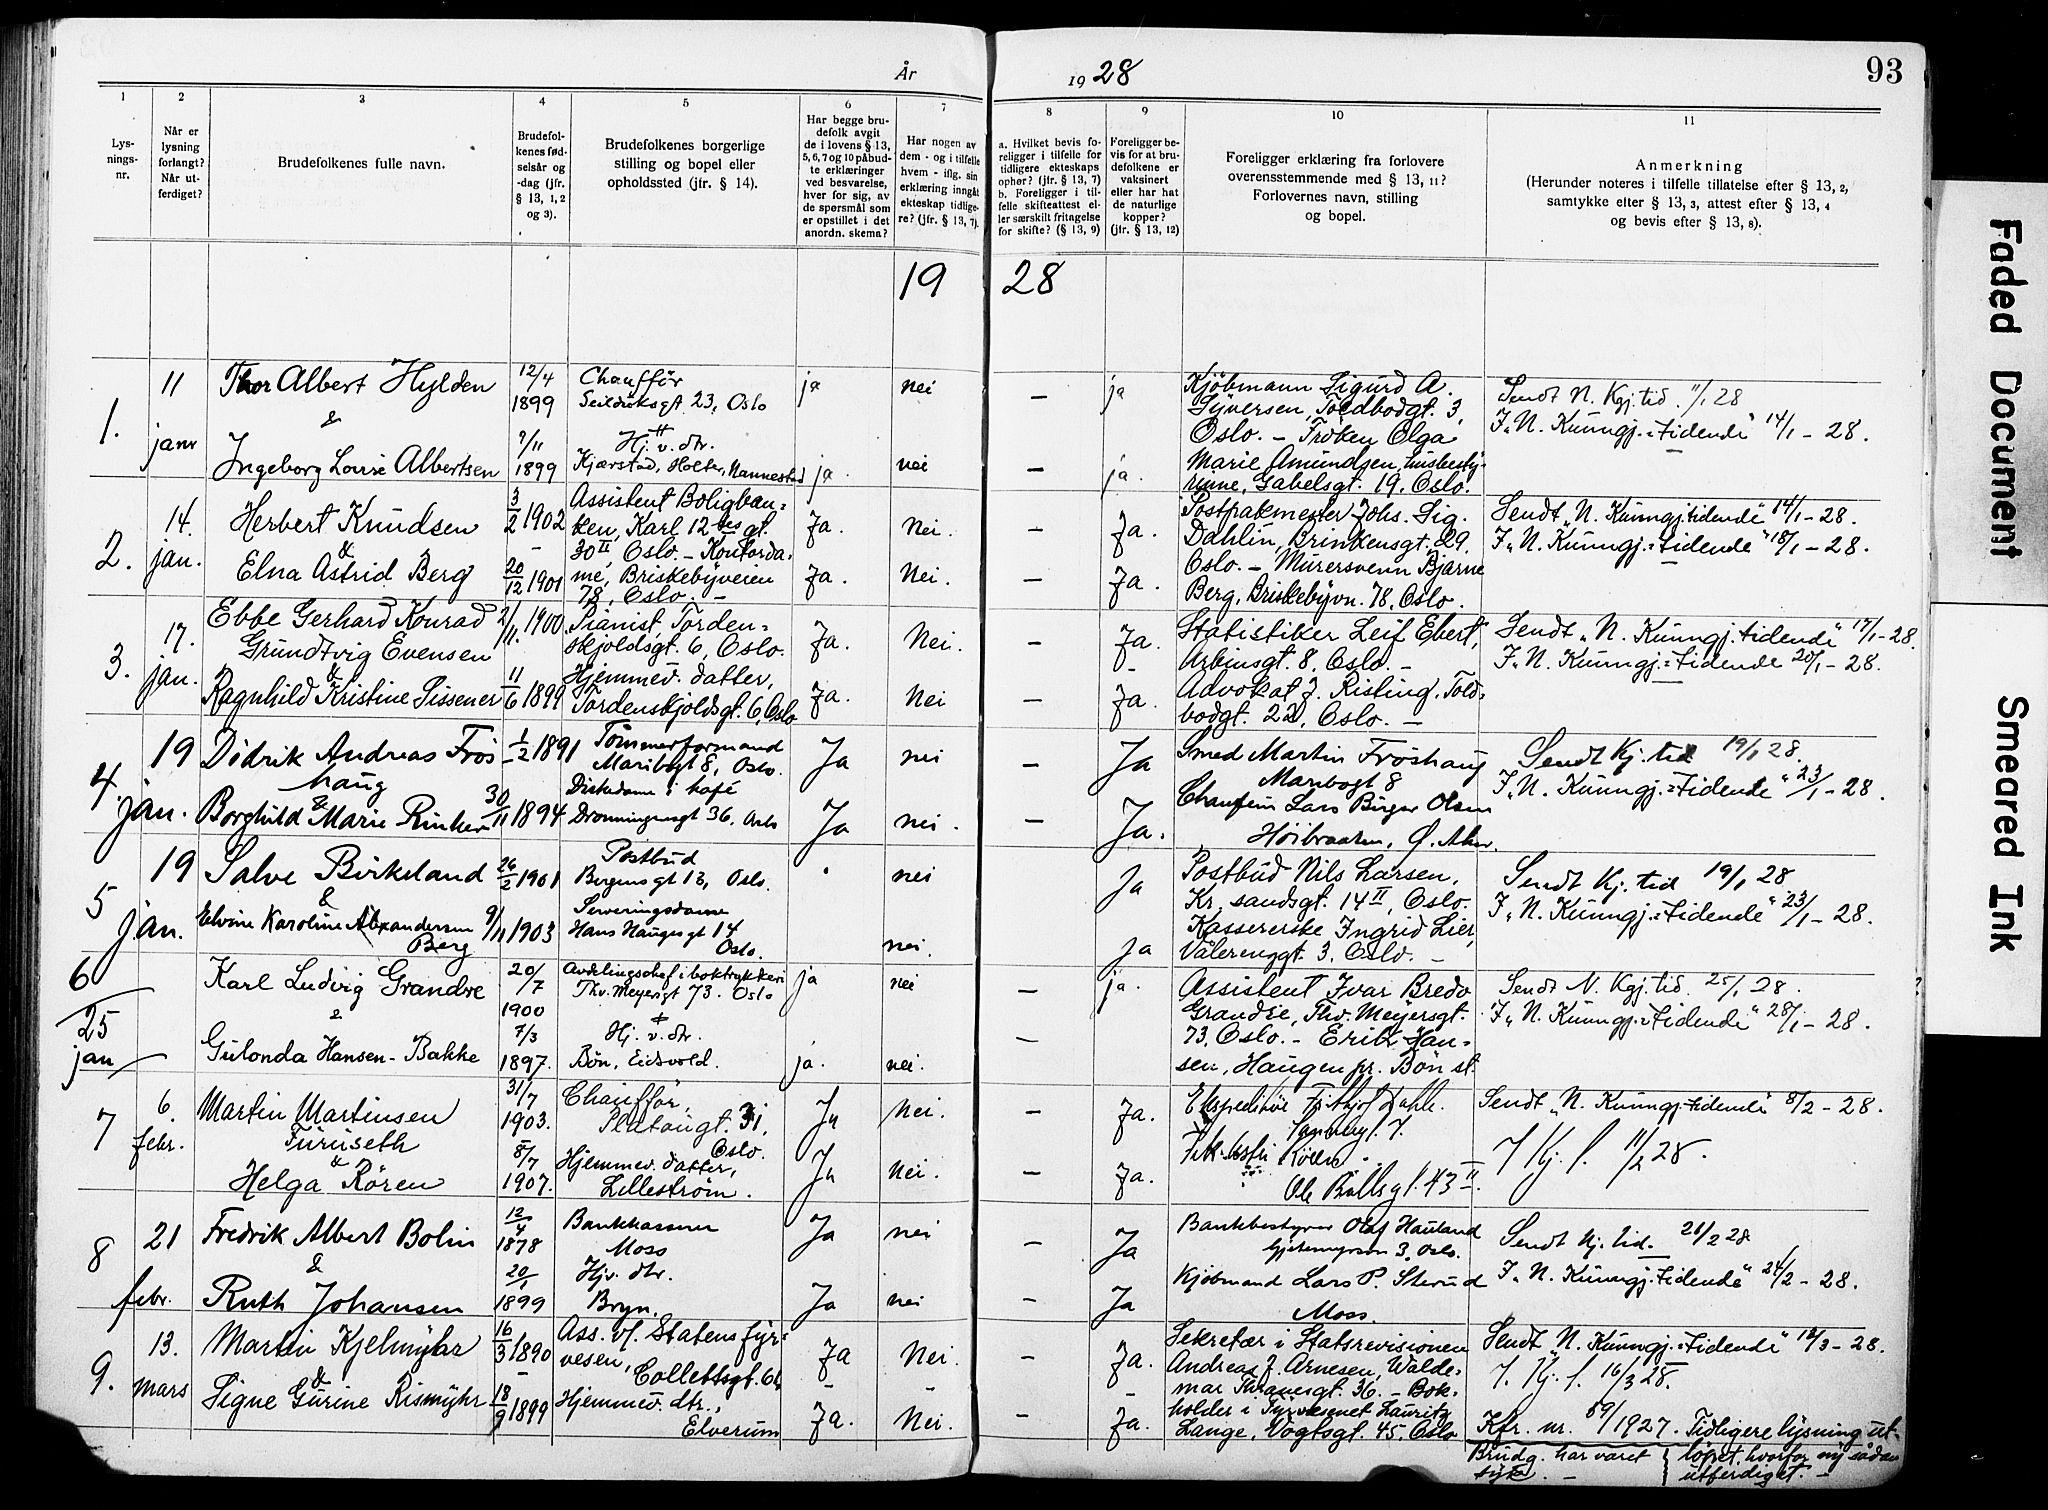 År 1928
93
1 2 3 4 5 6 7 8 9 10 11
Lys-
nings-
nr.
Når er
lysning
forlangt?
Når ut-
ferdiget?
Brudefolkenes fulle navn.
Brudefol-
kenes fød-
selsår og
-dag (jfr.
§ 13, 1, 2
og 3).
Brudefolkenes borgerlige
stilling og bopel eller
opholdssted (jfr. § 14).
Har begge bru-
defolk avgit
de i lovens § 13,
5, 6, 7 og 10 påbud-
te erklæringer
ved besvarelse,
hver for sig, av
de spørsmål som
er opstillet i det
anordn. skema?
Har nogen av
dem - og i tilfelle
hvem - iflg. sin
erklæring inngått
ekteskap tidlige-
re? (jfr. § 13, 7).
a. Hvilket bevis fo-
religger i tilfelle for
tidligere ekteskaps
ophør? (jfr. § 13, 7)
b. Foreligger i til-
felle skifteattest el-
ler særskilt fritagelse
for skifte? (§ 13, 9)
Foreligger be-
vis for at bru-
defolkene er
vaksinert
eller har hat
de naturlige
kopper?
(jfr. § 13, 12)
Foreligger erklæring fra forlovere
overensstemmende med § 13, 11?
Forlovernes navn, stilling
og bopel.
Anmerkning
(Herunder noteres i tilfelle tillatelse efter § 13, 2,
samtykke efter § 13, 3, attest efter § 13, 4
og bevis efter § 13, 8).
19 28
1.
11
janr
Thor Albert Hylden
&
Ingeborg Lovise Albertsen
12/4
1899
7/11
1899
Chaufför
Seilduksgt. 23, Oslo
Hj. v. dtr.
Kjærstad, Holter, Nannestad
ja nei — ja
ja. nei — ja.
Kjöbmann Sigurd A.
Syversen, Toldbodgt. 3,
Oslo. – Fröken Olga
Marie Amundsen, husbesty-
rinne, Gabelsgt. 19, Oslo.
Sendt N. Kgj. tid. 11/1 28
I „N. Kunngj.=tidende" 14/1 – 28.
2.
14.
jan.
Herbert Knudsen
&
Elna Astrid Berg
3/2 1902
20/12 1901
Assistent Boligban-
ken, Karl 12 tes gt.
30 II, Oslo – Kontorda-
me, Briskebyveien
78, Oslo. –
Ja. Nei. — Ja.
Ja. Nei. — Ja.
Postpakmester Johs. Sig.
Dahlin, Brinkensgt. 29.
Oslo. – Murersvenn Bjarne
Berg, Briskebyvn. 78, Oslo.
Sendt „N. Kunngj.tidende" 14/1 – 28.
I „N. Kunngj.=tidende" 18/1 – 28.
3.
17.
jan.
Ebbe Gerhard Konrad
Grundtvig Evensen
&
Ragnhild Kristine Sissener
2/11. 1900
11/6 1899
Pianist Torden=
skjoldsgt. 6, Oslo.
Hjemmev. datter,
Tordenskjoldsgt. 6, Oslo
Ja. Nei. — Ja.
Ja. Nei — Ja.
Statistiker Leif Ebert,
Arbinsgt. 8, Oslo. –
Advokat J. Risting, Told-
bodgt. 22, Oslo. –
Sendt „N. Kunngj.tidende" 17/1 – 28.
I „N. Kunngj.=tidende 20/1 – 28.
4.
19
jan.
Didrik Andreas Frös
haug
&
Borghild Marie Rinker
1/2 1891
30/11 1894
Tömmerformand
Maribogt 8, Oslo.
Diskedame i kafé
Dronningensgt 36. Oslo
Ja nei — Ja
Ja nei. — Ja.
Smed Martin Fröshaug
Maribogt 8
Lars Birger Olsen
Höibraaten, Ø. Aker.
Sendt Kj. tid 19/1 28.
I „N. Kunngj.=tidende" 23/1 – 28.
5
19
jan.
Salve Birkeland
&
Elvine Karoline Alexandersen
Berg
26/2 1901
9/11 1903
Postbud
Bergensgt 13, Oslo.
Serveringsdame
Hans Haugesgt 14
Oslo.
nei ja
nei. ja
Postbud Nils Larsen,
Kr. sandsgt. 14 II, Oslo.
Kassererske Ingrid Lier,
Vålerenggt 3, Oslo. –
Sendt Kj. tid 19/1 28
I „N. Kunngj.=tidende" 23/1 – 28.
6
25
jan
Karl Ludvig Grandre
&
Gulonda Hansen-Bakke
20/7
1900
7/3
1897.
Avdelingschef i boktrykkeri
Thv. Meyersgt 73. Oslo
Hj. v. dtr.
Bön, Eidsvold.
ja nei — ja.
ja. nei. —
Assistent Ivar Bredo
Grandre, Thv. Meyersgt.
73, Oslo. – Erik Han-
sen, Haugen pr. Bön st.
Sendt N. Kgj. tid. 25/1 28.
I „N. Kunngj.=tidende" 28/1 – 28.
7
6.
febr.
Martin Martinsen
Furuseth
&
Helga Rören
31/7
1903.
8/7
1907.
Chaufför,
Platougt. 31,
Oslo.
Hjemmev. datter,
Lilleström.
Ja Nei. — Ja.
Ja Nei. — Ja.
Ole Bullsgt. 43 II.
Sendt „N. Kunngj.tidende" 8/2 – 28.
I Kj. t. 11/2 28.
8
21
febr.
Fredrik Albert Bolin
&
Ruth Johansen
12/4
1878
20/1
1899
Bankkasserer
Moss
Hjv. dtr.
Bryn.
Ja nei — Ja
Ja nei — Ja
Bankbestyrer Olaf Hauland
Gjetemyrsvn 3, Oslo.
Kjöbmand Lars P. Sterud
Moss.
Sendt Kj. tid. 21/2 28
I „N. Kunngj.tidende" 24/2 – 28.
9.
13.
mars
Martin Kjelmyhr
&
Signe Gurine Rismyhr
16/3 1890
18/9 1899
Ass. v/. Statens fyr-
vesen,
Collettsgt. 64
Hjemmev. dtr.,
Elverum
Ja Nei. — Ja.
Ja. Nei. — Ja.
Sekretær i Statsrevisionen
Andreas J. Arnesen, Walde-
mar Thranesgt. 36. – Bok-
holder i Fyrvesenet Lauritz
Lange, Vogtsgt. 45, Oslo
Sendt „N. Kunngj.=tidende" 12/3 – 28.
I. Kj. t. 16/3 28.
Kfr. nr. 59/1927. Tidligere lysning ut-
löpet, hvorfor ny sådan
utferdiget. –
Brudg. har været
syk. –
Faded Document
Smeared Ink